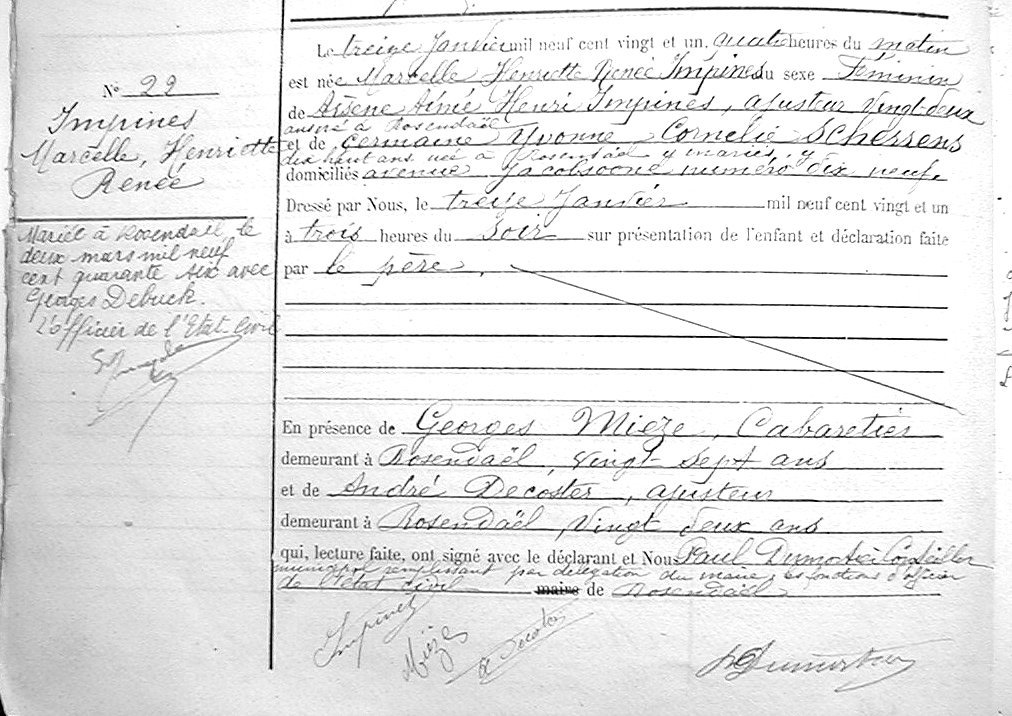 N° 22
Impines
Marcelle, Henriette
Renée
Mariée à Rosendaël, le
deux mars mil neuf
cent quarante six avec
Georges Debuck.
L'officier de l'Etat Civil
Le treize Janvier mil neuf cent vingt et un, quatre heures du matin
est née Marcelle Henriette Renée Impines du sexe Féminin
de Arsène Aimé Henri Impines, ajusteur vingt-deux
ans né à Rosendaël
et de Germaine Yvonne Cornelie Scherrens
dix huit ans née à Rosendaël mariés,
domiciliés avenue Jacobsoone numéro dix neuf.
Dressé par Nous, le treize Janvier mil neuf cent vingt et un
à trois heures du Soir sur présentation de l'enfant et déclaration faite
par le père.
En présence de Georges Mieze, Cabaretier
demeurant à Rosendaël, vingt sept ans
et de André Decoster, ajusteur
demeurant à Rosendaël, vingt deux ans
qui, lecture faite, ont signé avec le déclarant et Nous Paul Dumortier Conseiller
municipal remplissant par délégation du maire, les fonctions d'officier
de l'état civil maire de Rosendaël
Impines
Mièze
A Decoster
P Dumortier